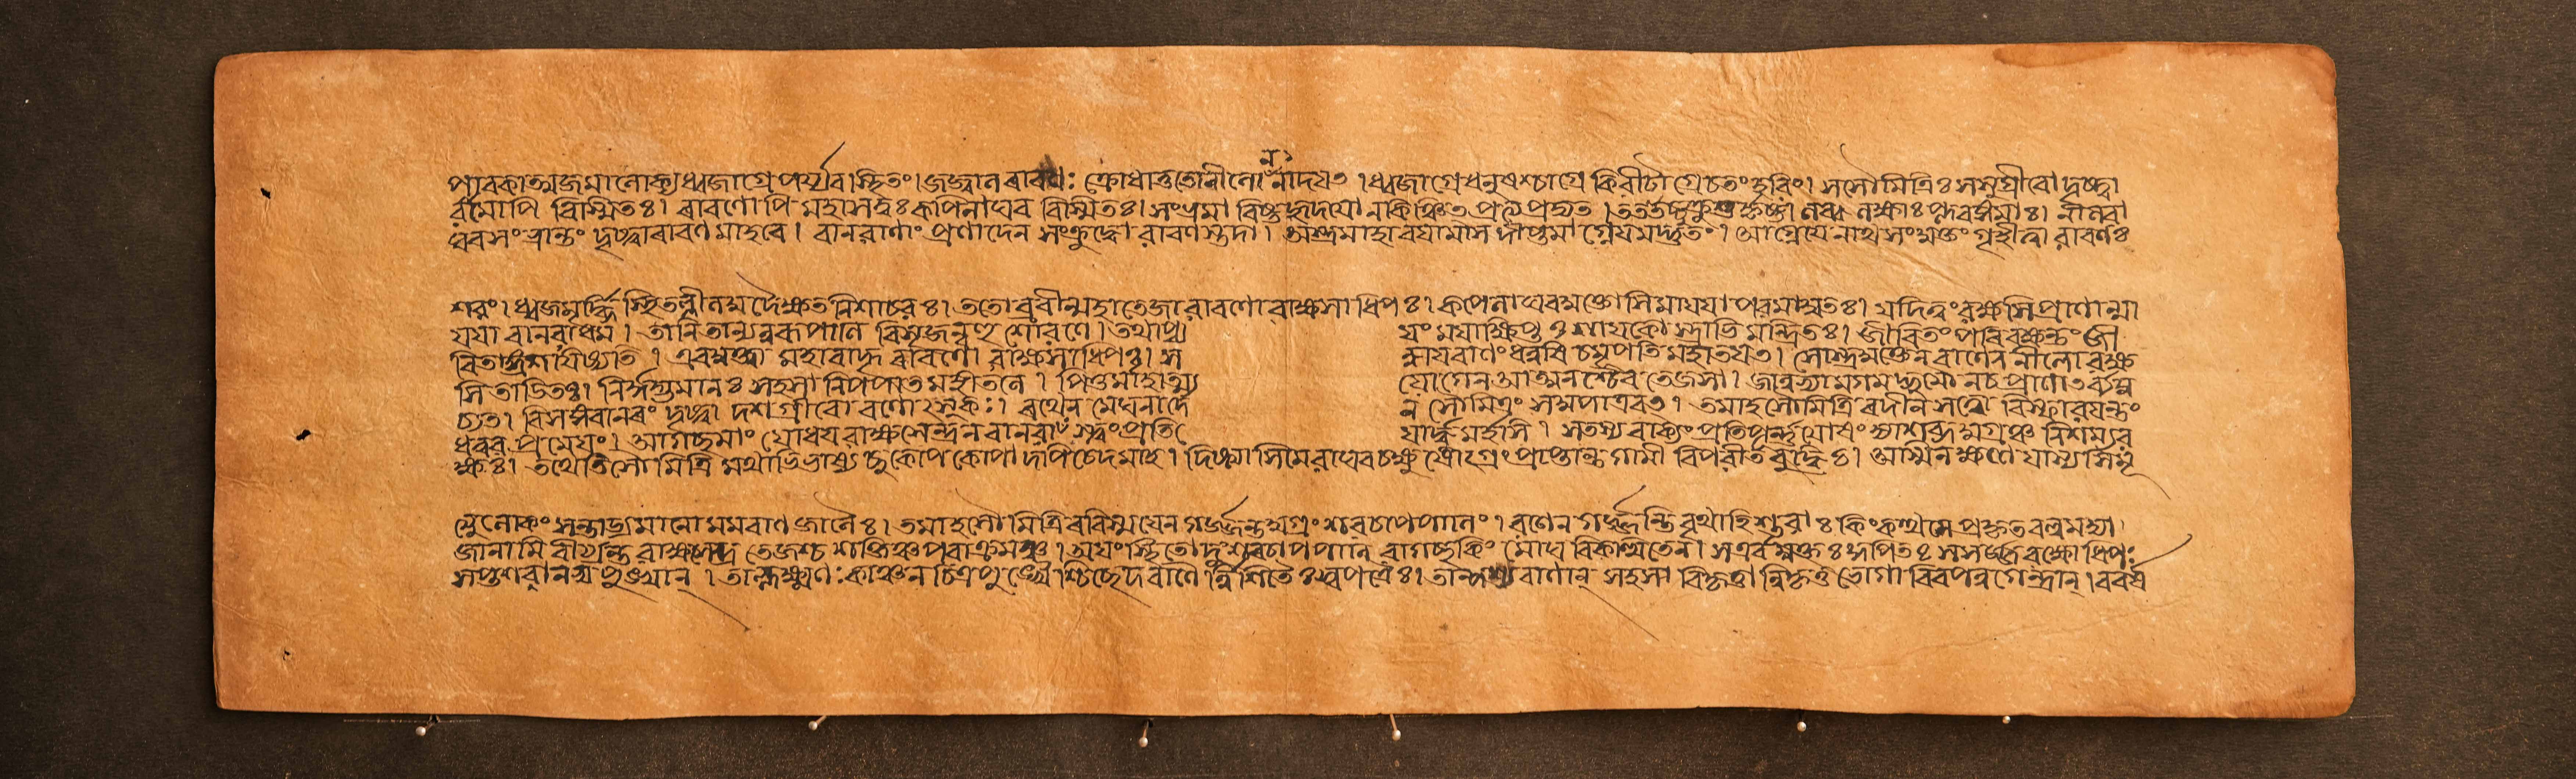 পাবকাত্মজমালোক্য ধ্বজাগ্রে পর্য্যবস্থিতং। জজ্বাল ৰাবণঃ ক্রোধাত্ততোনীলো ননাদয়ত। ধ্বজাগ্রে ধনুষশ্চাগ্রে কিৰীটাগ্রে চতং হৰিং। সসৌমিত্রিঃ সসুগ্রীবো দৃষ্ট্বা
ৰামোপি বিস্মিতঃ। ৰাবণোপি মহাসত্বঃ কপিলাঘব বিস্মিতঃ। সংভ্রমা বিষ্টহৃদয়ো নকিঞ্চিত প্রত্য প্রদ্যত। নীলনবা
ঘবসংভ্রান্তং দৃষ্ট্বা ৰাবণমাহবে। বানরাণাং প্রণাদেন সংক্রুদ্ধো ৰাবণস্তদা। অস্ত্রমাহাৰয়ামাস দীপ্তমাগ্নেয়মদ্ভুতং। আগ্নেয়েনাথ সংযুক্তং গৃহীত্বা রাবণঃ
শরং। ধ্বজমূৰ্দ্ধি স্থিতন্নীলমদৈক্ষত নিশাচরঃ। ততোব্রবীন্মহাতেজা রাবণো ৰাক্ষসাধিপঃ। কপেলাঘবযুক্তোসি মায়য়া পরমায়ুতঃ। যদিত্বং ৰক্ষসি প্রাণান্মা
যযা বানরাধম। তানিতান্যনুৰূপাণি বিসৃজন্বহুশোৰণে। তথাপ্য য়ং ময়াক্ষিপ্ত ও শায়কোস্ত্রাভিমন্ত্রিতঃ। জীবিতং পৰিৰক্ষন্তং জী
বিতাদ্ভ্রংশয়িষ্যতি। এবমুক্ত্বা মহাবাহু ৰাবণো ৰাক্ষসাধিপঃ। স ন্ধায়বাণং ধনুষি চমূপতি মহাতয়ত। সোস্ত্রমুক্তেন বাণেন নীলো বক্ষ
সি তাডিতঃ। নির্দ্দহ্যমানঃ সহসা নিপপাত মহীতলে। পিতুৰ্মাহাত্ম্য যোগেন আত্মনশ্চৈব তেজসা। জানুভ্যামগমদ্ভূমৌ নচ প্রাণান্
চ্যত। বিসজ্ঞংবানৰং দৃষ্ট্বা দশগ্রীবো ৰণোৎসুকঃ। ৰথেন মেঘনাদে ন সৌমিত্রিং সমুপাদ্রবত। তমাহ সৌমিত্রি ৰদীনসত্ত্বো বিস্ফাৰয়ন্তং
ধনুৰপ্রমেয়ং। আগচ্ছমাং যোধয় রাক্ষসেন্দ্র ন বানরাং স্ত্বং প্রতি যোদ্ধুমৰ্হসি। সতস্য বাক্যং প্রতিপূর্ণঘোষং জ্যাশব্দমুগ্রঞ্চ নিশম্যৰ
ক্ষঃ। তথেতি সৌমিত্রি মথাভিভাষ্য চুকোপ কোপাদপিচেদমাহ। দিষ্ট্যাসিমে রাঘব চক্ষুষোঽগ্রং প্রাপ্তোন্তগামী বিপৰীতবুদ্ধিঃ। অস্মিন ক্ষণে যাস্যসি মৃ
ত্যুলোকং সন্তাড্যমানো মমবাণজালৈঃ। তমাহ সৌমিত্রি ৰবিস্ময়েন গৰ্জ্জন্তমুগ্রং শৰচাপপাণিং। ৰণেন গৰ্জ্জন্তি বৃথাহি শূৰাঃ কিং কত্থসে প্রকৃত বলমদ্যা
জানামি বীৰ্য্যন্তব ৰাক্ষসেন্দ্র তেজশ্চ শক্তিঞ্চ পৰাক্রমঞ্চ। অয়ং স্থিতো শৰচাপপাণি ৰাগচ্ছকিং মোঘ বিকত্থিতেন। সএবমুক্তঃ কুপিতঃ সসৰ্জ্জ ৰক্ষোধিপঃ
সপ্তশৰানথ পুঙ্খান্। তান্লক্ষ্মণঃ কাঞ্চন চিত্রপুঙ্খৈ শ্চিচ্ছেদ বাণৈ ৰ্নিশিতৈঃ সুপত্রৈঃ। তান্প্রেক্ষ্য বাণান্ সহসা বিকৃত্তান্নিকৃত্ত ভোগানিব পন্নগেন্দ্রান্। ববৰ্ষ